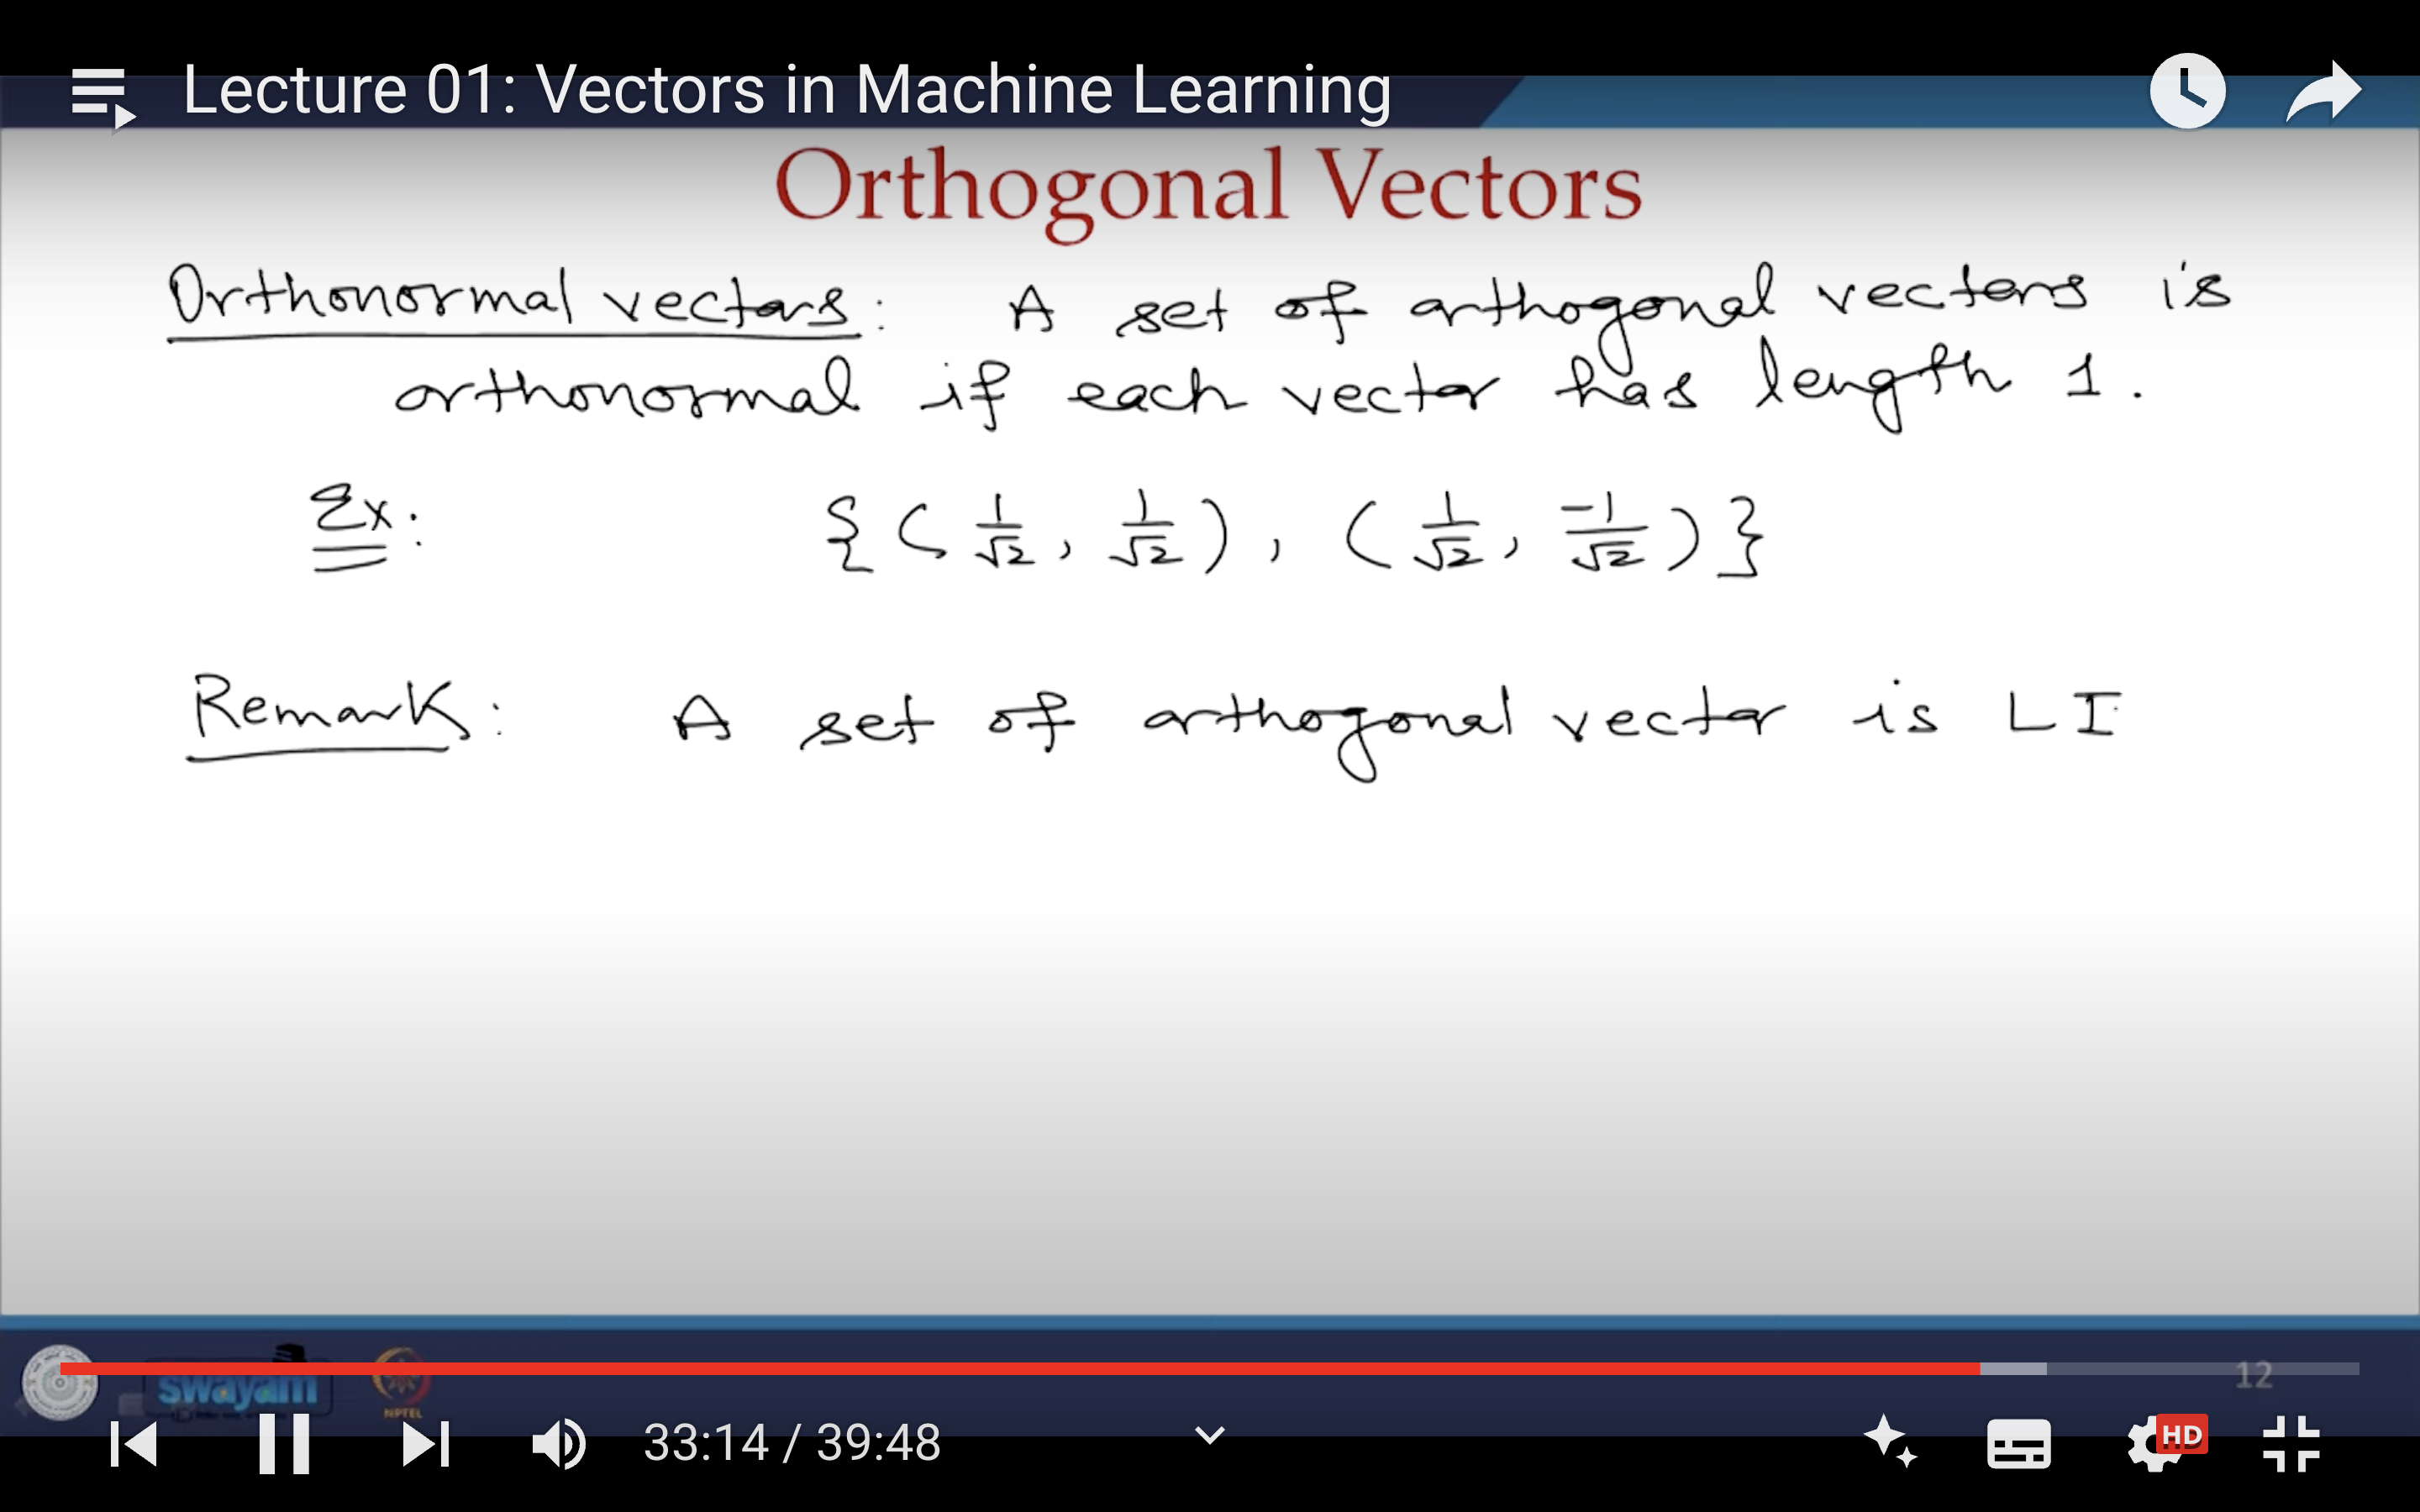 Lecture 01: Vectors in Machine Learning
Orthogonal Vectors
Orthonormal vectors: A set of orthogonal vectors is
orthonormal if each vector has length 1.
Ex: {(1/√2, 1/√2), (1/√2, -1/√2)}
Remark: A set of orthogonal vector is LI
swayam
NPTEL
12
33:14 / 39:48
HD